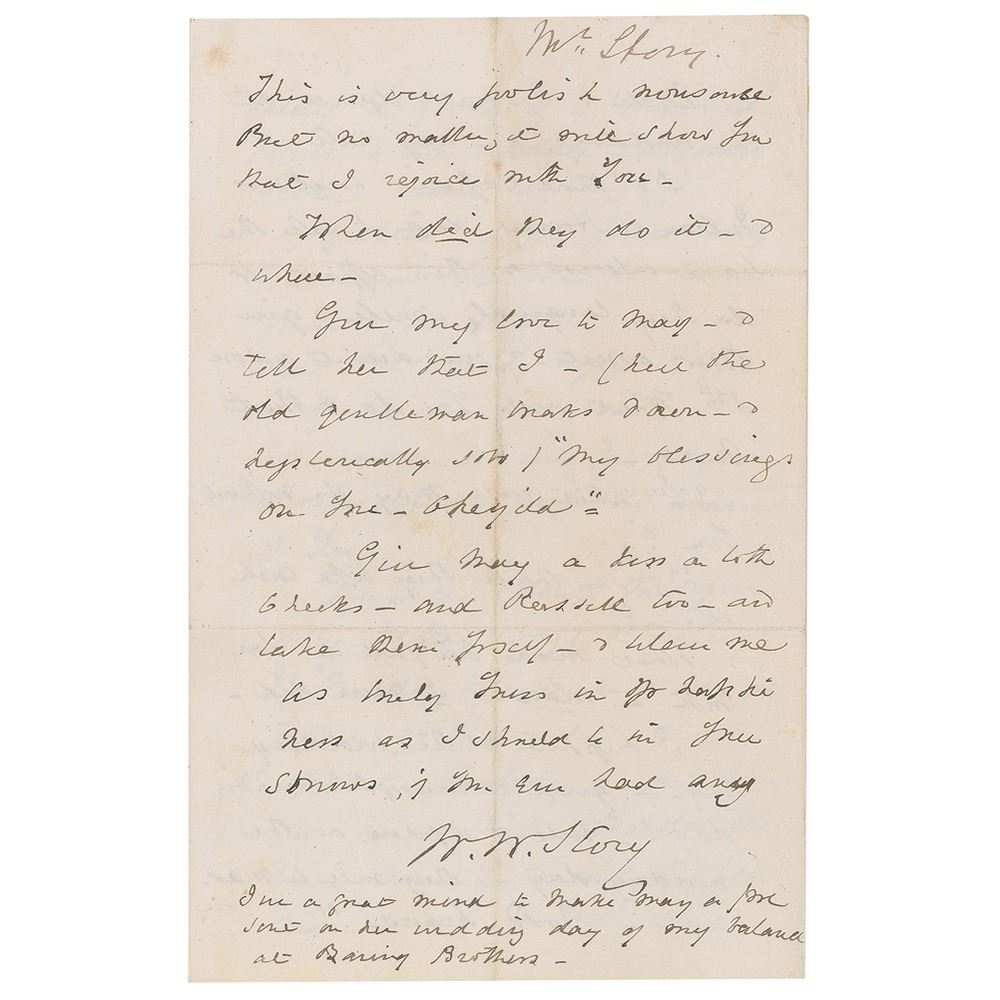 Mr. Story.
This is very foolish nonsense
But no matter, it will show you
that I rejoice with you –
When did they do it – &
where –
Give my love to May – &
tell her that I – (here the
old gentleman breaks down – &
hysterically sobs) "My blessings
on you – Cheyild"
Give May a kiss on both
Cheeks – and Russell too – and
take them yrself – & believe me
as truly yours in yr happi
ness as I should be in your
sorrows, if you ever had any
W. W. Story
I've a great mind to make May a pre
sent on her wedding day of my balance
at Baring Brothers –